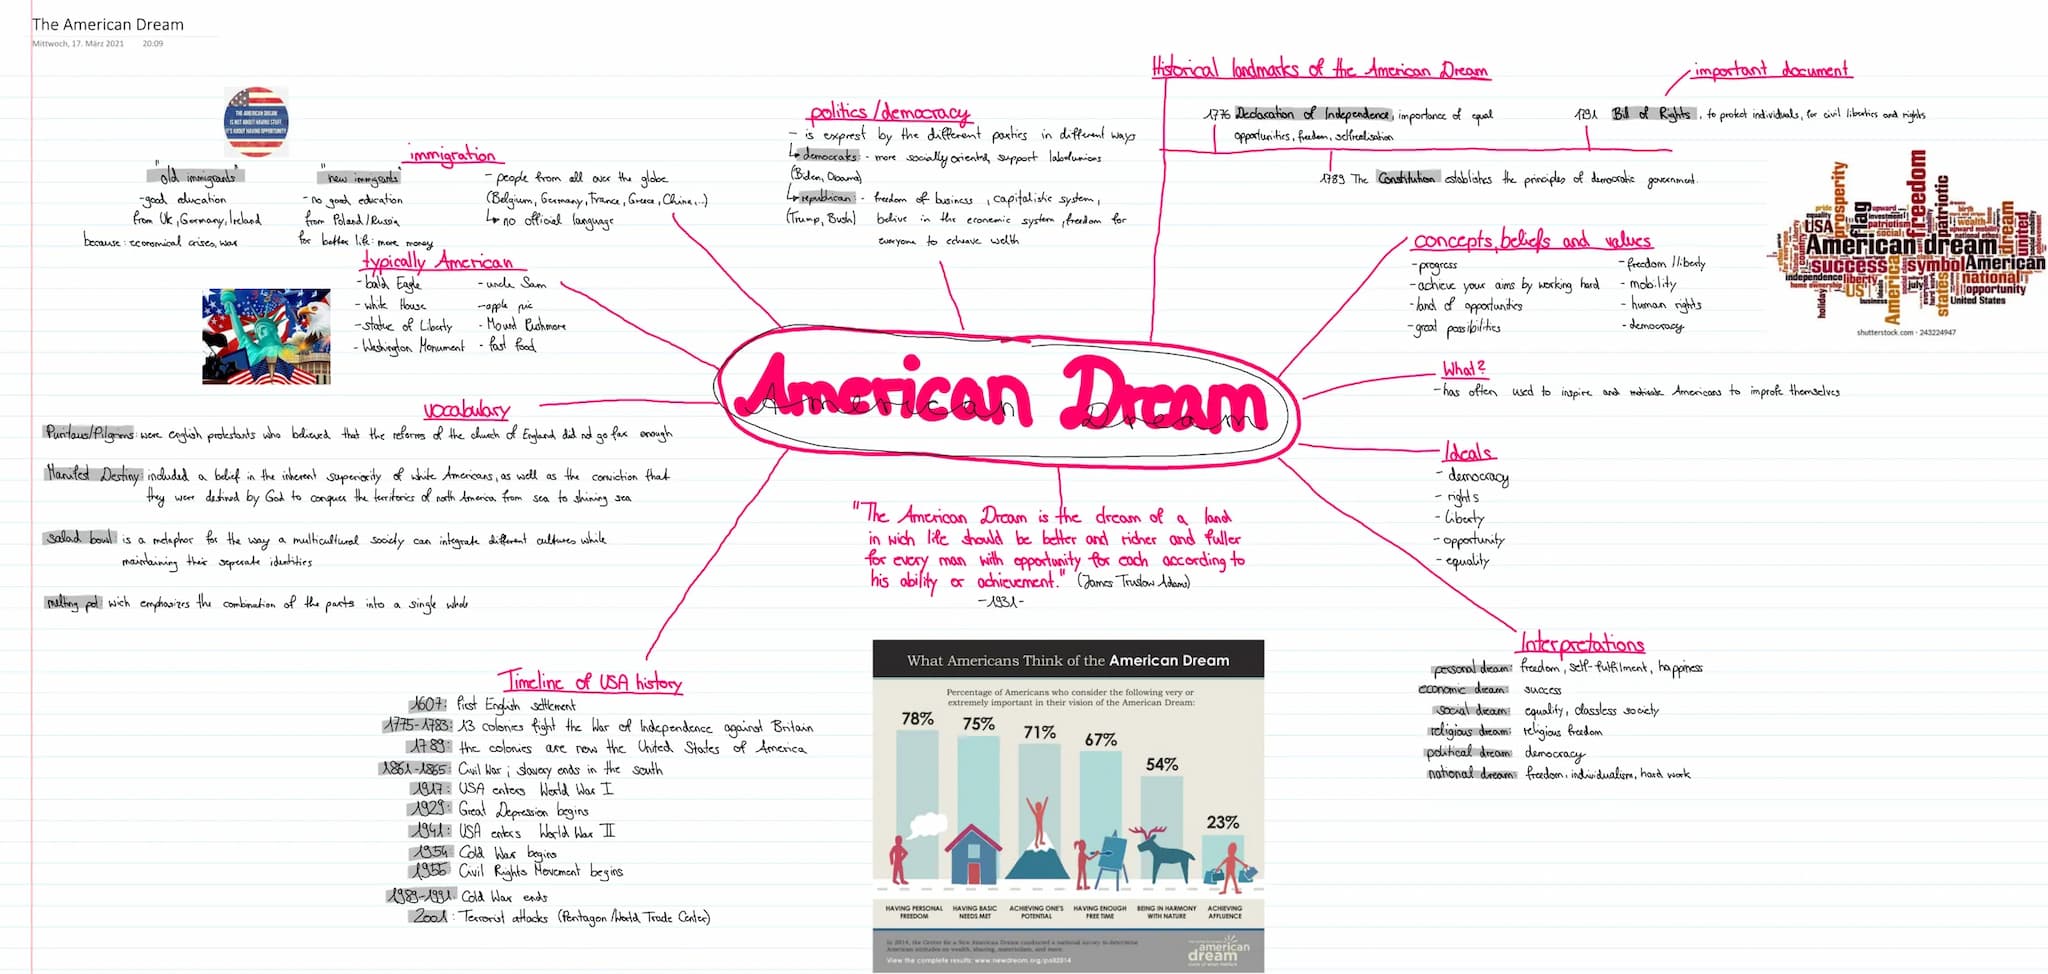 The American Dream
Mittwoch, 17. März 2021 20:09
THE AMERICAN DREAM
IS NOT ABOUT HAVING STUFF
IT'S ABOUT HAVING OPPORTUNITY
immigration
"old immigrants"
-good education
from Uk, Germany, Ireland
because: economical crises, war
"new immigrants"
- no good education
from Poland/Russia
for better life: more money
- people from all over the globe
(Belgium, Germany, France, Greece, China,..)
↳ no official language
politics/democracy
- is exprest by the different parties in different ways
↳ democrats: - more socially oriented, support laborunions
(Biden, Obama)
↳ republican - freedom of business, capitalistic system,
(Trump, Bush) belive in the economic system, freedom for
everyone to achieve welth
Historical landmarks of the American Dream
important document
1776 Declaration of Independence, importance of equal
opportunities, freedom, selfrealisation
1791 Bill of Rights, to protect individuals, for civil liberties and rights
1789 The Constitution establishes the principles of democratic government.
typically American
- bald Eagle
- white House
- statue of Liberty
- Washington Monument
- uncle Sam
- apple pie
- Mound Rushmore
- fast food
concepts, beliefs and values
- progress
- achieve your aims by working hard
- land of opportunities
- great possibilities
- freedom/liberty
- mobility
- human rights
- democracy
prosperity
USA
flag
freedom
patriotic
dream
united
American dream
success
symbol
American
independence
liberty
US
America
states
national
opportunity
United States
holiday
business
home ownership
investment
patriotism
upward
pride
equality
social
birth
wealth
upward mobility
national ethos
july
shutterstock.com · 243224947
American Dream
American Dream
What?
- has often used to inspire and motivate Americans to improfe themselves
vocabulary
Puritaus/Pilgrims: were english protestants who believed that the reforms of the church of England did no go far enough
Manifed Destiny: included a belief in the inherent superiority of white Americans, as well as the conviction that
they were destined by God to conquer the territories of north America from sea to shining sea
salad bowl is a metaphor for the way a multicultural society can integrate different cultures while
maintaining their seperate identities
melting pot wich emphasizes the combination of the parts into a single whole
Ideals
- democracy
- rights
- Liberty
- opportunity
- equality
"The American Dream is the dream of a land
in wich life should be better and richer and fuller
for every man with opportunity for each according to
his ability or achievement." (James Truslow Adams)
-1931-
Interpretations
personal dream: freedom, self-fulfilment, happiness
economic dream: success
social dream: equality, classless society
religious dream: religious freedom
political dream: democracy
national dream: freedom, individualism, hard work
Timeline of USA history
1607: First English settlement
1775-1783: 13 colonies fight the War of Independence against Britain
1789: the colonies are now the United States of America
1861-1865: Civil War; slavery ends in the south
1917: USA enters World War I
1929: Great Depression begins
1941: USA enters World War II
1954: Cold War begins
1955: Civil Rights Movement begins
1989-1991 Cold War ends
2001: Terrorist attacks (Pentagon/World Trade Center)
What Americans Think of the American Dream
Percentage of Americans who consider the following very or
extremely important in their vision of the American Dream:
78% 75% 71% 67% 54% 23%
HAVING PERSONAL FREEDOM
HAVING BASIC NEEDS MET
ACHIEVING ONE'S POTENTIAL
HAVING ENOUGH FREE TIME
BEING IN HARMONY WITH NATURE
ACHIEVING AFFLUENCE
In 2014, the Center for a New American Dream conducted a national survey to determine
American attitudes on wealth, sharing, materialism, and more.
View the complete results: www.newdream.org/poll2014
american
dream